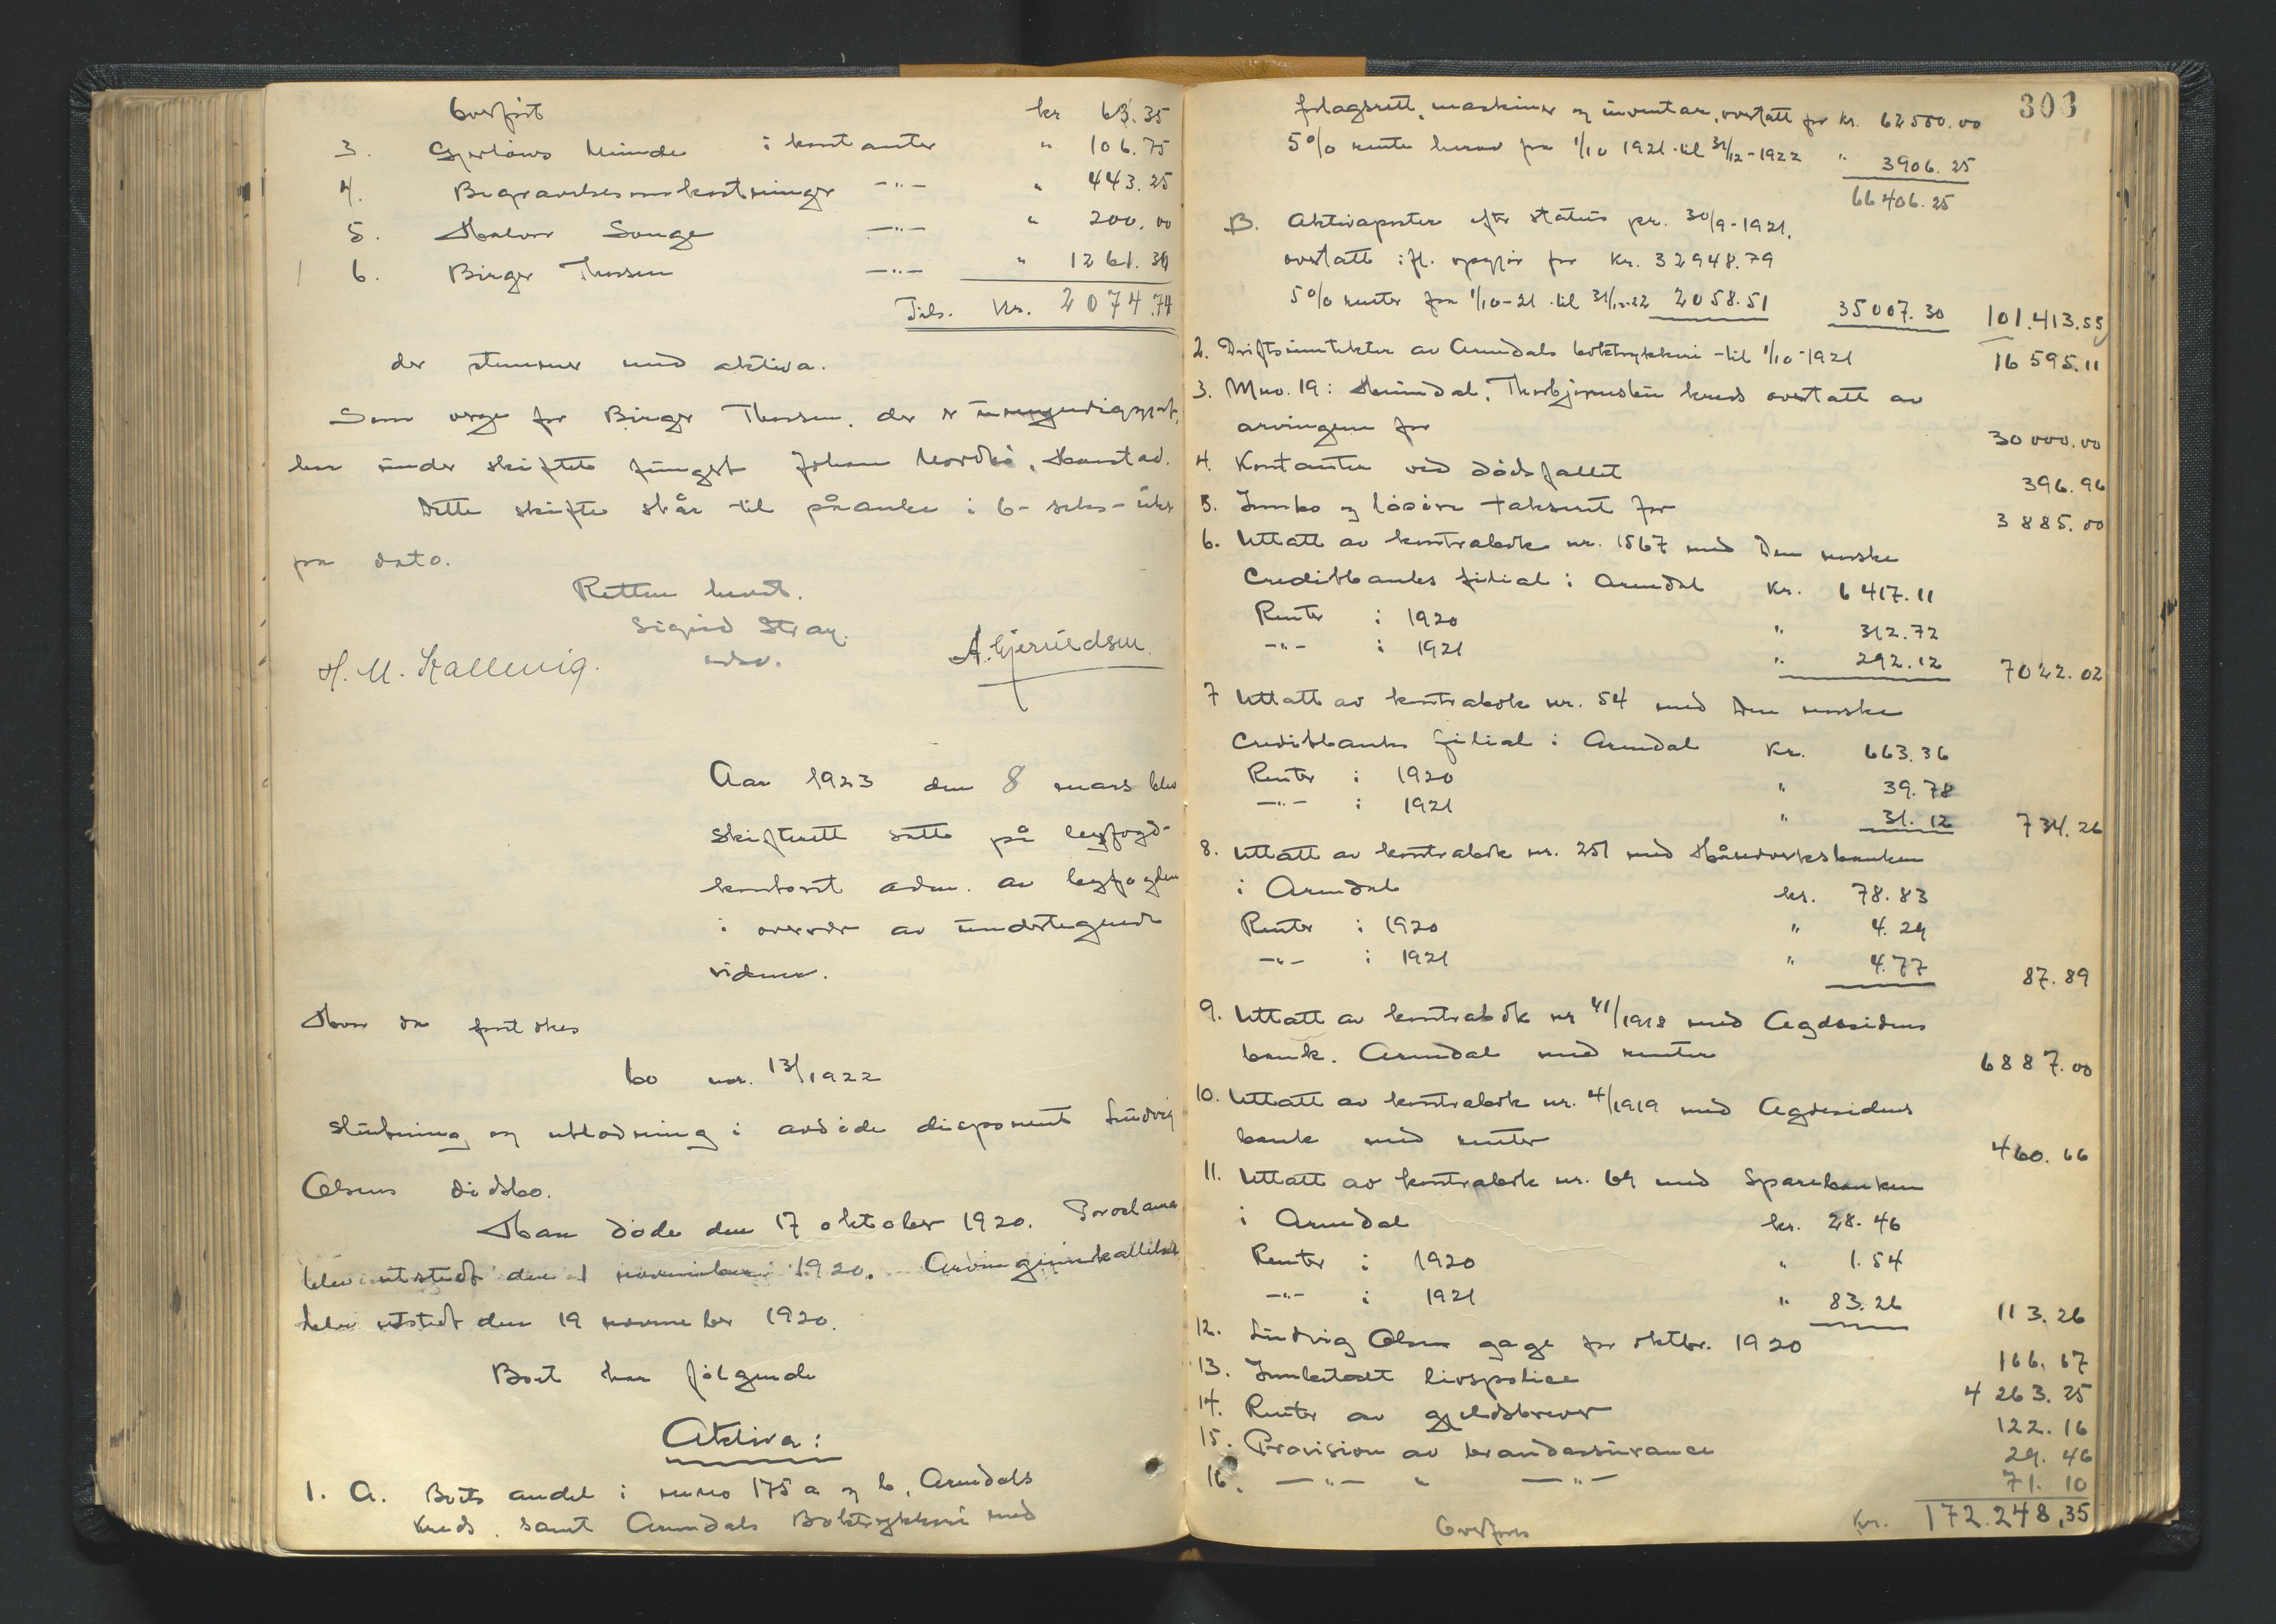 Overført kr 63.35
3. Gjerløws Minde i kontanter " 106.75
4. Begravelsesomkostninger -"- " 443.25
5. Halvor Songe -"- " 200.00
6. Birger Thorsen -"- " 1261.39
Tils. Kr. 2074.74
der stemmer med aktiva.
Som verge for Birger Thorsen, der er
har under skiftet fungert Johan Hardstad.
Dette skifte står til påanke i 6-seks-uker
fra dato.
Retten hevet.
Sigurd Stray
adv.
H. M. Hallevig. A. Gjeruldsen
Aar 1923 den 8 mars blev
skifterett satt på byfogd-
kontoret adm. av byfogden
i overvær av undertegnede
vidner.
Hvor da foretokes
bo nr. 13/1922
slutning og utlodning i avdøde disponent Ludvig
Olsens dødsbo.
Han døde den 17 oktober 1920. Proclama
blev utstedt den 1 november 1920. Arvinginnkallelse
blev utstedt den 19 november 1920.
Boet har følgende
Aktiva:
1. A. Boets andel i mno 175 a og b, Arendals
Kreds, samt Arendals Boktrykkeri med
303
forlagsrett, maskiner og inventar, overtatt for Kr. 62500.00
5% rente herav fra 1/10 1921 til 31/12-1922 " 3906.25
66406.25
B. Aktivaposter efter status pr. 30/9-1921,
overtatt ifl. opgjør for Kr. 32948.79
5% renter fra 1/10-21 til 31/12-22 2058.51 35007.30 101.413.55
2. Driftsinntekter av Arendals boktrykkeri til 1/10-1921 16595.11
3. Mno. 19: Thorbjørnsbu kreds overtatt av
arvingene for 30000.00
4. Kontanter ved dødsfallet 396.96
5. Innbo og løsøre taksert for 3885.00
6. Uttatt av kontrabok nr. 1567 med Den norske
Creditbanks filial i Arendal Kr. 6417.11
Renter i 1920 " 312.72
-"- i 1921 " 292.12 7022.02
7 Uttatt av kontrabok nr. 54 med Den norske
Creditbanks filial i Arendal Kr. 663.36
Renter i 1920 " 39.78
-"- i 1921 " 31.12 734.26
8. Uttatt av kontrabok nr. 251 med Håndverksbanken
i Arendal kr. 78.83
Renter i 1920 " 4.29
-"- i 1921 " 4.77 87.89
9. Uttatt av kontrabok nr 41/1918 med Agdesidens
bank. Arendal med renter 6887.00
10. Uttatt av kontrabok nr. 4/1919 med Agdesidens
bank med renter 460.66
11. Uttatt av kontrabok nr. 69 med Sparebanken
i Arendal kr. 28.46
Renter i 1920 " 1.54
-"- i 1921 " 83.26 113.26
12. Ludvig Olsen gage for oktbr. 1920 166.67
13. Innbetalt livspolice 4263.25
14. Renter av gjeldsbrever 122.16
15. Provision av brandassurance 29.46
16. -"- " -"- 71.10
Overføres Kr. 172.248,35